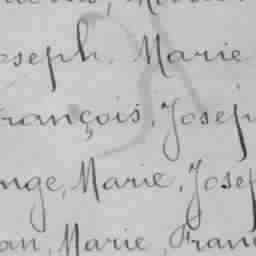 oseph. Marie
rançois, Josep
nge, Marie, Josep
an, Marie, Franc